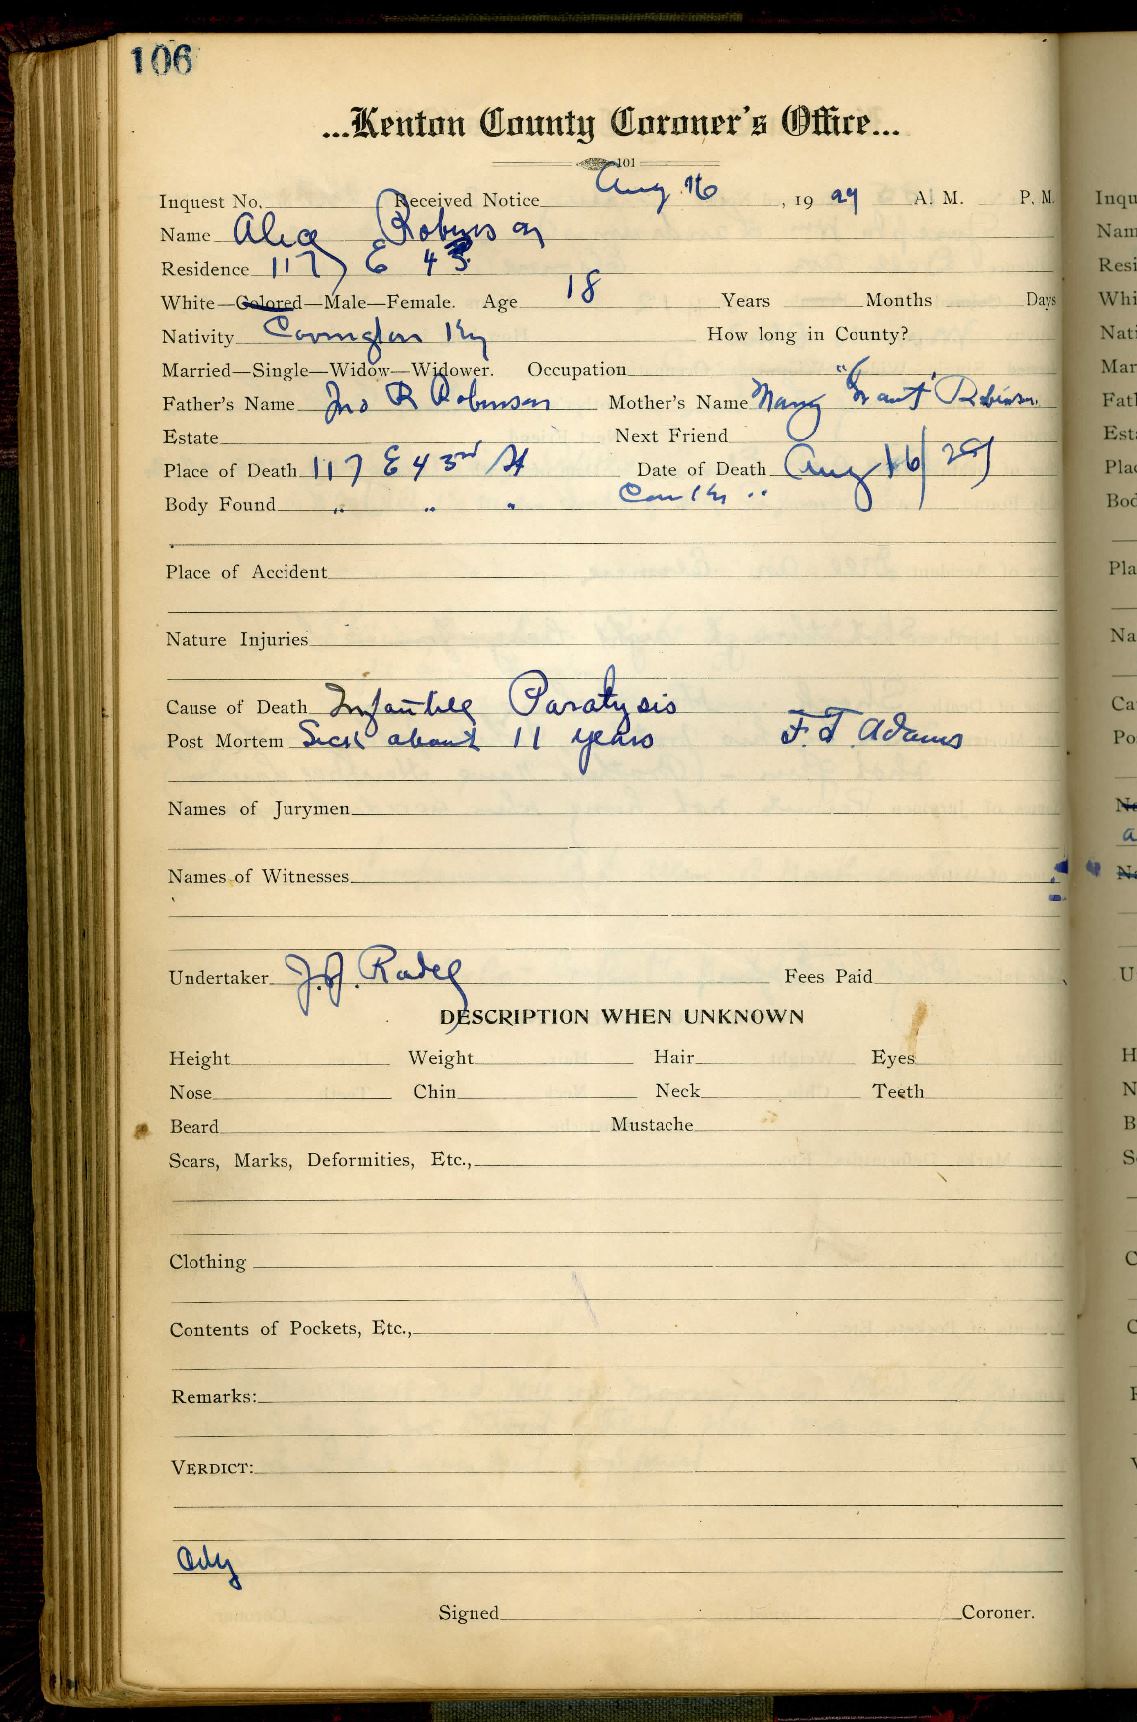 106
...Kenton County Coroner's Office...
101
Inquest No. Received Notice Aug 16, 19 29 A. M. P. M.
Name Robinson
Residence 117 E 43
White—Colored—Male—Female. Age 18 Years Months Days
Nativity Covington Ky How long in County?
Married—Single—Widow—Widower. Occupation
Father's Name Jno R Robinson Mother's Name Mary "Grant" Robinson
Estate Next Friend
Place of Death 117 E 43rd St Date of Death Aug 16/29
Body Found " " " Cov Ky "
Place of Accident
Nature Injuries
Cause of Death Infantile Paralysis
Post Mortem Sick about 11 years F. T. Adams
Names of Jurymen
Names of Witnesses
Undertaker J. J. Radel Fees Paid
DESCRIPTION WHEN UNKNOWN
Height Weight Hair Eyes
Nose Chin Neck Teeth
Beard Mustache
Scars, Marks, Deformities, Etc.,
Clothing
Contents of Pockets, Etc.,
Remarks:
VERDICT:
Signed Coroner.
Inqu
Nam
Resi
Whi
Nati
Mar
Fatl
Esta
Plac
Bod
Pla
Na
Ca
Po
U
H
N
B
S
C
C